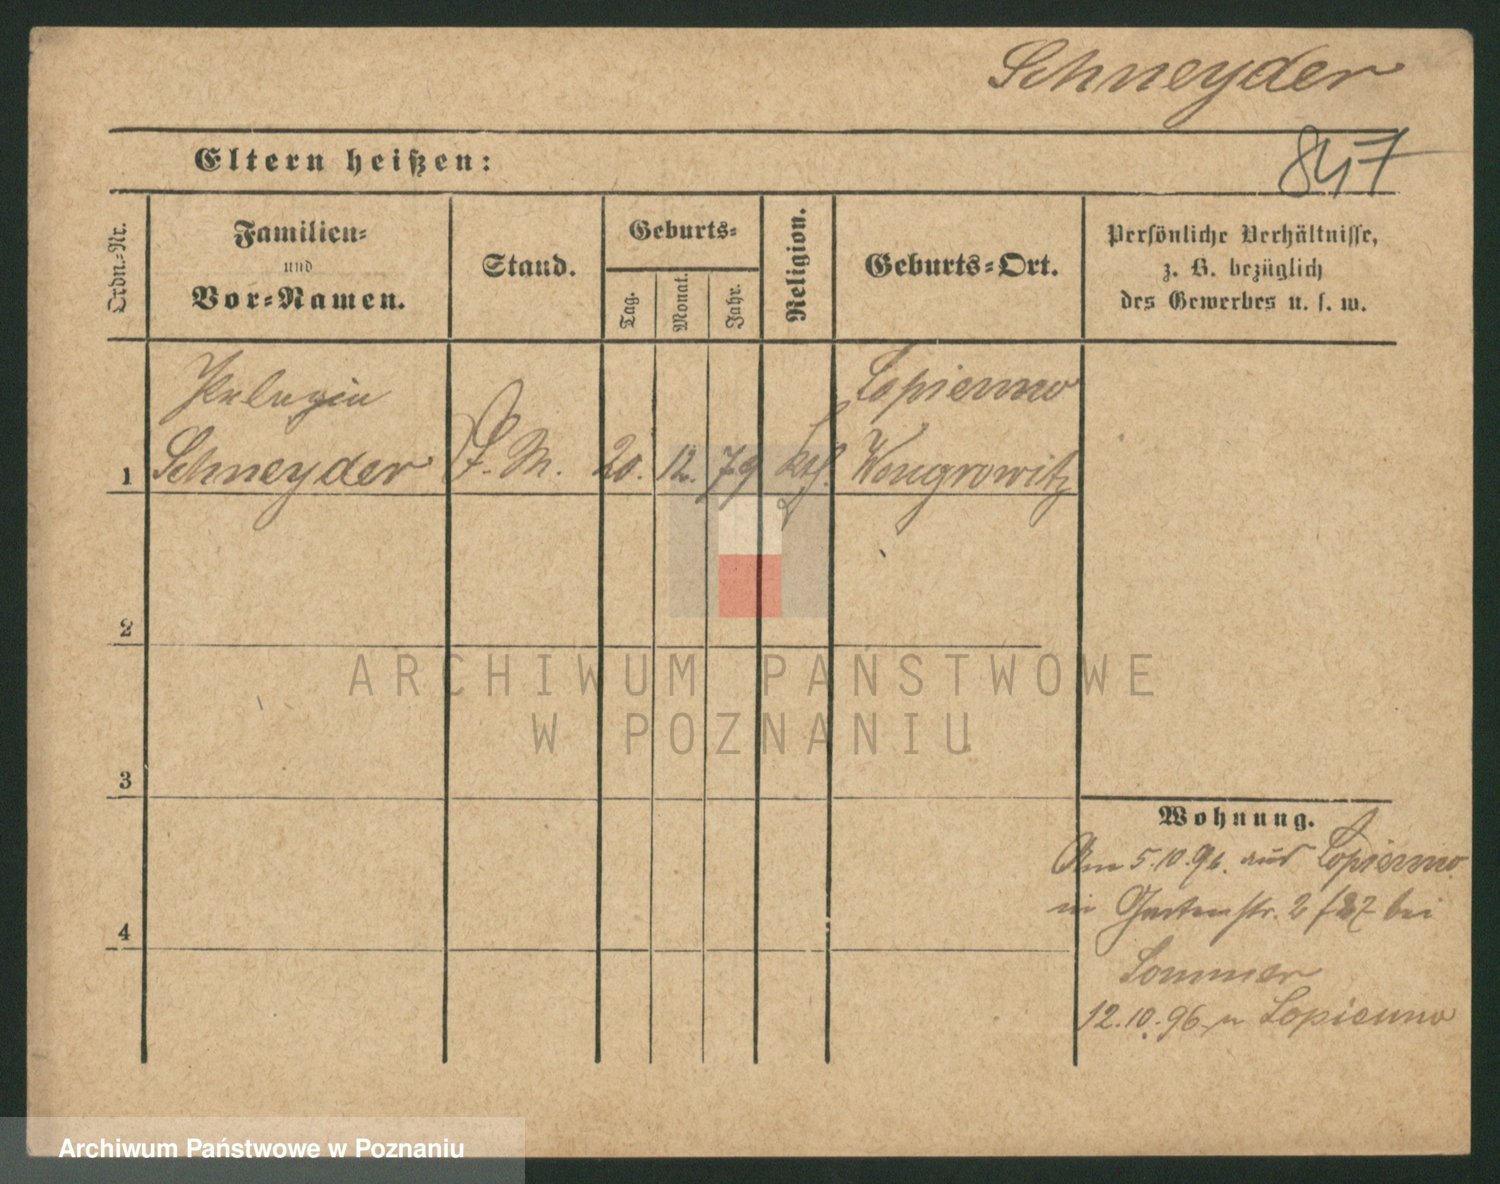 Schneyder
847
Eltern heißen:
Ordn.-Nr.
Familien-
und
Vor-Namen.
Stand.
Geburts-
Tag.
Monat.
Jahr.
Religion.
Geburts-Ort.
Persönliche Verhältnisse,
z. B. bezüglich
des Gewerbes u. s. w.
Pelagia
Lopienno
1 Schneyder D. M. 20. 12. 79 kth. Wongrowitz
2
ARCHIWUM PAŃSTWOWE
W POZNANIU
3
Wohnung.
Am 5.10.96. aus Lopienno
in Gartenstr. 2 bei
4
Sommer
12.10.96 n Lopienno
Archiwum Państwowe w Poznaniu